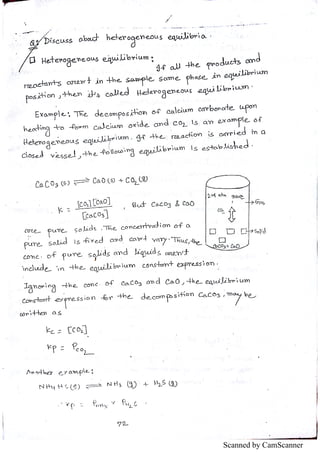 Q: Discuss about heterogeneous equilibria.
Heterogeneous equilibrium:
If all the products and
reactants aren't in the sample some phase in equilibrium
position, then it's called Heterogeneous equilibrium.
Example: The decomposition of calcium carbonate upon
heating to form calcium oxide and CO2 is an example of
Heterogeneous equilibrium. If the reaction is carried in a
closed vessel, the following equilibrium is established.
CaCO3 (s) ⇌ CaO (s) + CO2 (g)
K = [CO2][CaO] / [CaCO3] , But CaCO3 & CaO
are pure solids. The concentration of a
pure solid is fixed and can't vary. Thus, the
conc. of pure solids and liquids aren't
include in the equilibrium constant expression.
CO2
Gas
Solid
CaCO3 + CaO
Ignoring the conc. of CaCO3 and CaO, the equilibrium
constant expression for the decomposition CaCO3, may be
written as
Kc = [CO2]
Kp = PCO2
Another example:
NH4HS (s) ⇌ NH3 (g) + H2S (g)
Kp = PNH3 × PH2S
72
Scanned by CamScanner